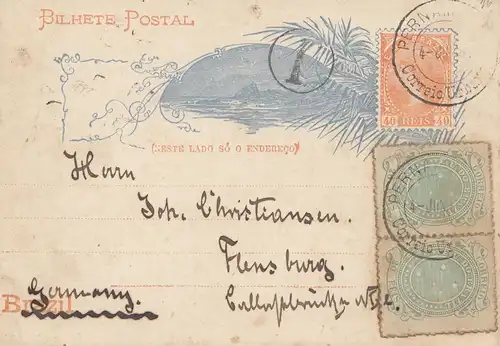 BILHETE POSTAL
PERNAM
Correio Urb
T
40 REIS 40
(NESTE LADO SÓ O ENDEREÇO)
PERNA
Correio Ur
Herrn
Joh. Christiansen
Flensburg.
Germany.
Brazil